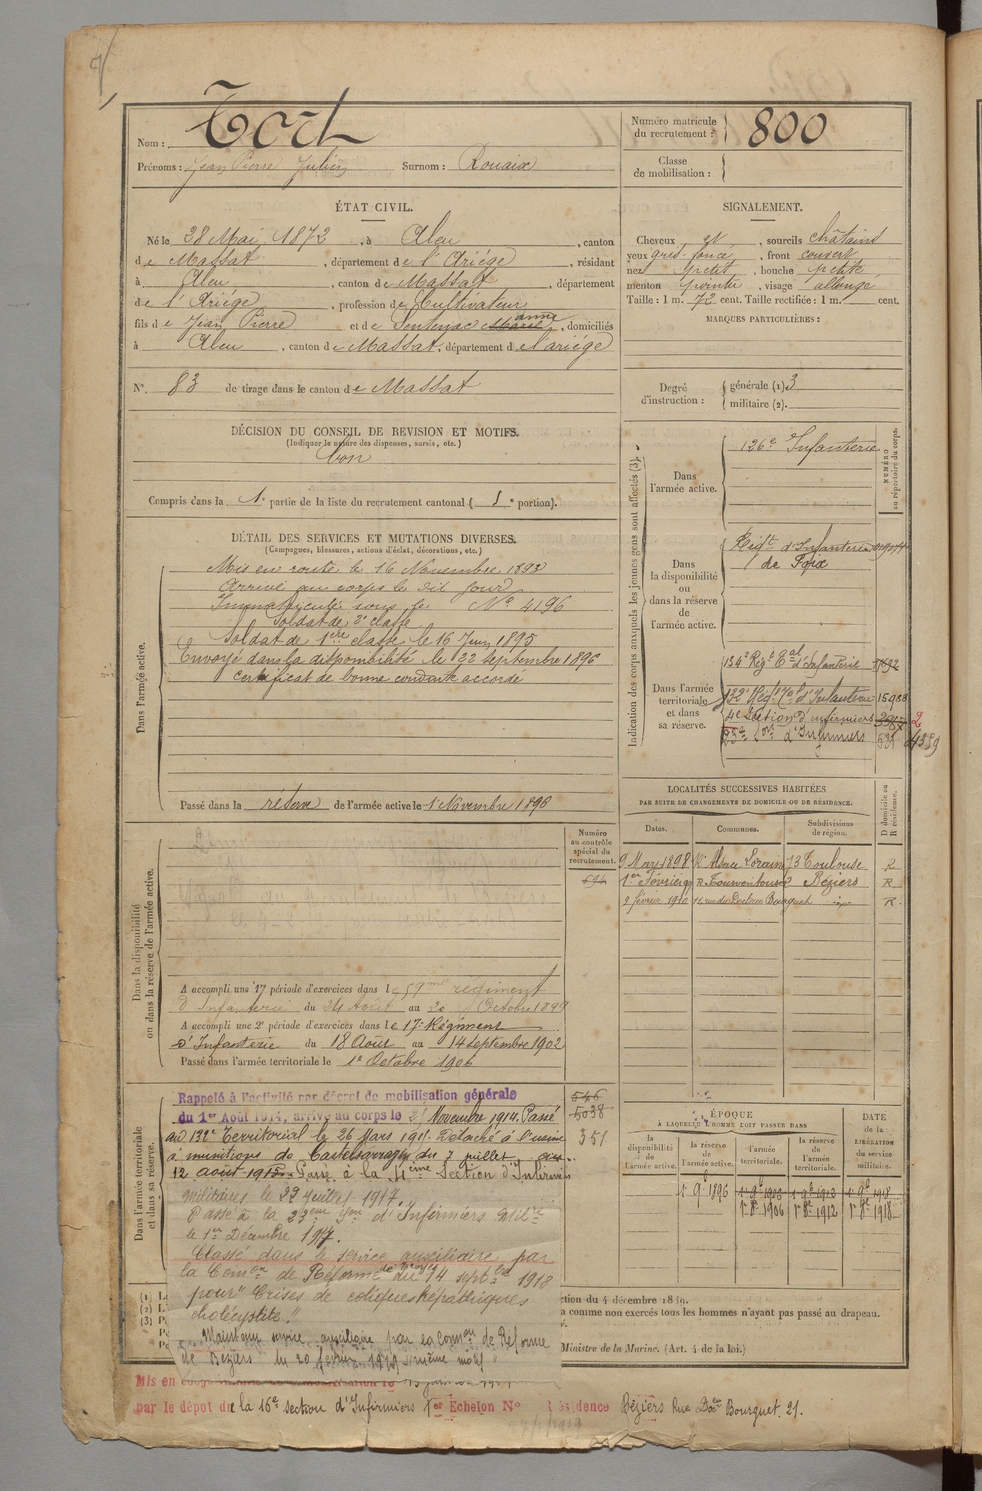 Nom : Tort
Prénoms : Jean Pierre Julien Surnom : Rouaix
Numéro matricule du recrutement : 800
Classe de mobilisation :
ÉTAT CIVIL.
Né le 28 Mai 1872, à Aleu, canton
de Massat, département de l'Ariége, résidant
à Aleu, canton de Massat, département
de l'Ariége, profession de Cultivateur
fils de Jean Pierre et de Sentenac Marie anne, domiciliés
à Aleu, canton de Massat, département de l'ariége
N° 83 de tirage dans le canton de Massat
SIGNALEMENT.
Cheveux et, sourcils châtains
yeux gris foncé, front couvert
nez petit, bouche petite
menton pointu, visage allongé
Taille : 1 m. 72 cent. Taille rectifiée : 1 m. cent.
MARQUES PARTICULIÈRES :
Degré d'instruction : générale (1) 3
militaire (2).
DÉCISION DU CONSEIL DE REVISION ET MOTIFS.
(Indiquer la nature des dispenses, sursis, etc.)
bon
Compris dans la 1e partie de la liste du recrutement cantonal ( 1e portion).
DÉTAIL DES SERVICES ET MUTATIONS DIVERSES.
(Campagnes, blessures, actions d'éclat, décorations, etc.)
Dans l'armée active.
Mis en route le 16 Novembre 1893
Arrivé au corps le dit jour
Immatriculé sous le N° 4196
Soldat de 2e classe
Soldat de 1ère classe le 16 Juin 1895
Envoyé dans la disponibilité le 22 septembre 1896
Certificat de bonne conduite accordé
Passé dans la réserve de l'armée active le 1 Novembre 1896
Indication des corps auxquels les jeunes gens sont affectés (3).
NUMÉRO au répertoire du corps.
Dans l'armée active.
126e Infanterie
Dans la disponibilité ou dans la réserve de l'armée active.
Régt d'Infanterie
de Foix
Dans l'armée territoriale et dans sa réserve.
134e Régt Tal d'Infanterie
132e Régt Tal d'Infanterie 15988
4e Section d'infirmiers
23e Son d'Infirmiers 531
LOCALITÉS SUCCESSIVES HABITÉES
PAR SUITE DE CHANGEMENTS DE DOMICILE OU DE RÉSIDENCE.
D domicile ou R résidence.
Dates. Communes. Subdivisions de région.
9 Mars 1898 Alsace Lorraine 73 Toulouse R
1er Février Béziers R
2 février 1910 rue du Docteur Bourguet R
Dans la disponibilité ou dans la réserve de l'armée active.
Numéro au contrôle spécial du recrutement.
A accompli une 1e période d'exercices dans le 59me régiment
d'Infanterie du 24 Août au 20 Octobre 1899
A accompli une 2e période d'exercices dans le 17e Régiment
d'Infanterie du 18 Aout au 14 septembre 1902
Passé dans l'armée territoriale le 1er Octobre 1906
Dans l'armée territoriale et dans sa réserve.
546
5038
351
Rappelé à l'activité par décret de mobilisation générale
du 1er Août 1914, arrivé au corps le 21 Novembre 1914. Passé
au 132e Territorial le 26 Mars 1915. Détaché à l'usine
à munitions de Castelsarrazin du 7 juillet au
12 août 1915. Passé à la 4ième Section d'Infirmiers
militaires le 22 Juillet 1917.
Passé à la 23eme Son d'Infirmiers Milres
le 1er Décembre 1917.
Classé dans le service auxiliaire par
la Comon de Réforme de Troyes du 14 septbre 1918
pour "Crises de coliques hépathiques
cholécystite."
Maintenu service auxiliaire par la Comon de Réforme
de Béziers du 20 février 1919 même motif
ÉPOQUE
A LAQUELLE L'HOMME DOIT PASSER DANS
DATE de la LIBÉRATION du service militaire.
la disponibilité de l'armée active. la réserve de l'armée active. l'armée territoriale. la réserve de l'armée territoriale.
1r 9e 1896 1r 9e 1906 1r 9e 1912 1r 9e 1918
1r 8e 1906 1r 8e 1912 1r 8e 1918
ction du 4 décembre 1889.
a comme non exercés tous les hommes n'ayant pas passé au drapeau.
Ministre de la Marine. (Art. 4 de la loi.)
Mis en
par le dépôt de la 16e section d'Infirmiers 1er Echelon N° Résidence Béziers Rue Docteur Bourguet 21.